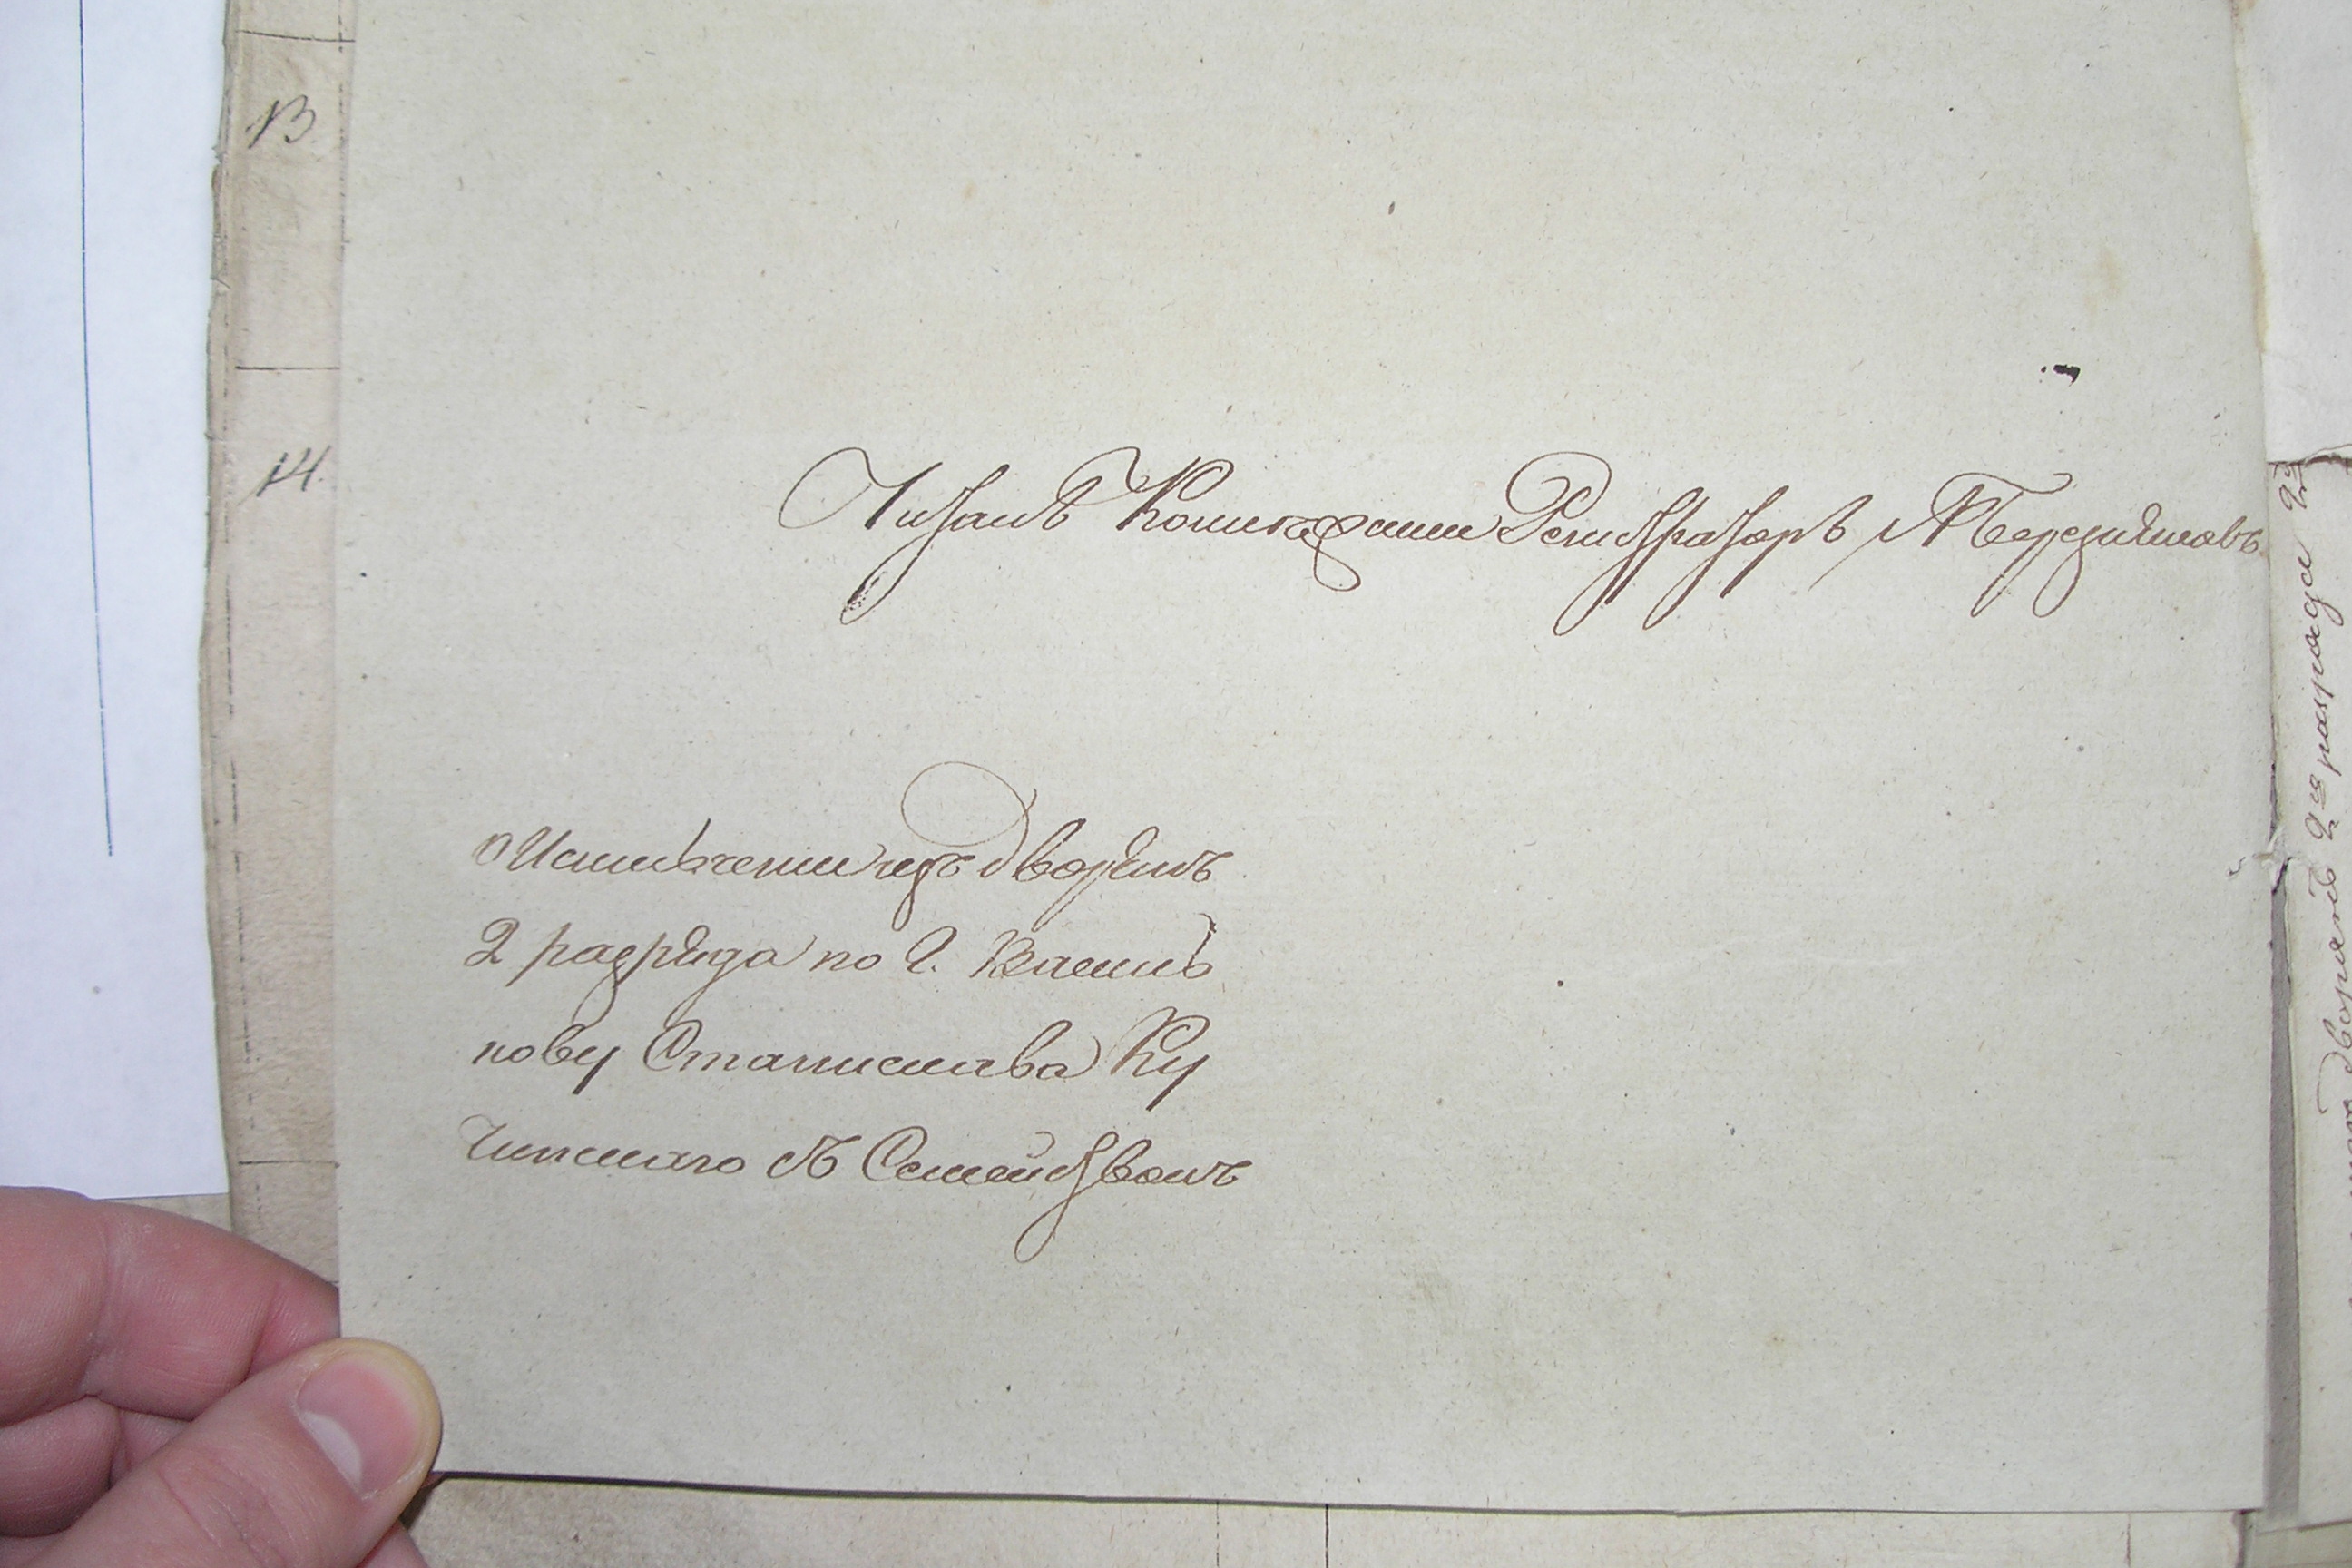 13
14.
Читалъ Коллежский Регистраторъ А Березняковъ
О Исключении изъ Дворянъ
2 разряда по г. Василь
кову Станислава Ку
чинскаго съ Семействомъ
дворянъ 2го разряда